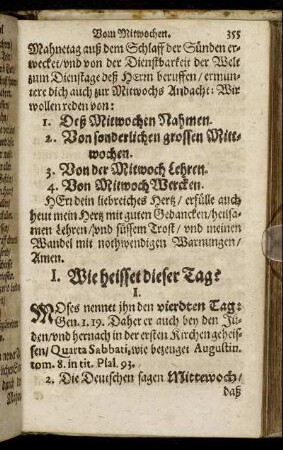 Vom Mitwochen. 355
Mahnetag auß dem Schlaff der Sünden er-
wecket/vnd von der Dienstbarkeit der Welt
zum Dienstage deß HErrn beruffen/ermun-
tere dich auch zur Mitwochs Andacht: Wir
wollen reden von:
1. Deß Mitwochen Nahmen.
2. Von sonderlichen grossen Mitt-
wochen.
3. Von der Mitwoch Lehren.
4. Von Mitwoch Wercken.
HErr dein liebreiches Hertz/erfülle auch
heut mein Hertz mit guten Gedancken/heilsa-
men Lehren/vnd süssem Trost/vnd meinen
Wandel mit nothwendigen Warnungen/
Amen.
I. Wie heisset dieser Tag?
I.
MOses nennet ihn den vierdten Tag:
Gen. 1. 19. Daher er auch bey den Jü-
den/vnd hernach in der ersten Kirchen geheis-
sen/Quarta Sabbati, wie bezeuget Augustin.
tom. 8. in tit. Psal. 93.
2. Die Deutschen sagen Mittewoch/
daß